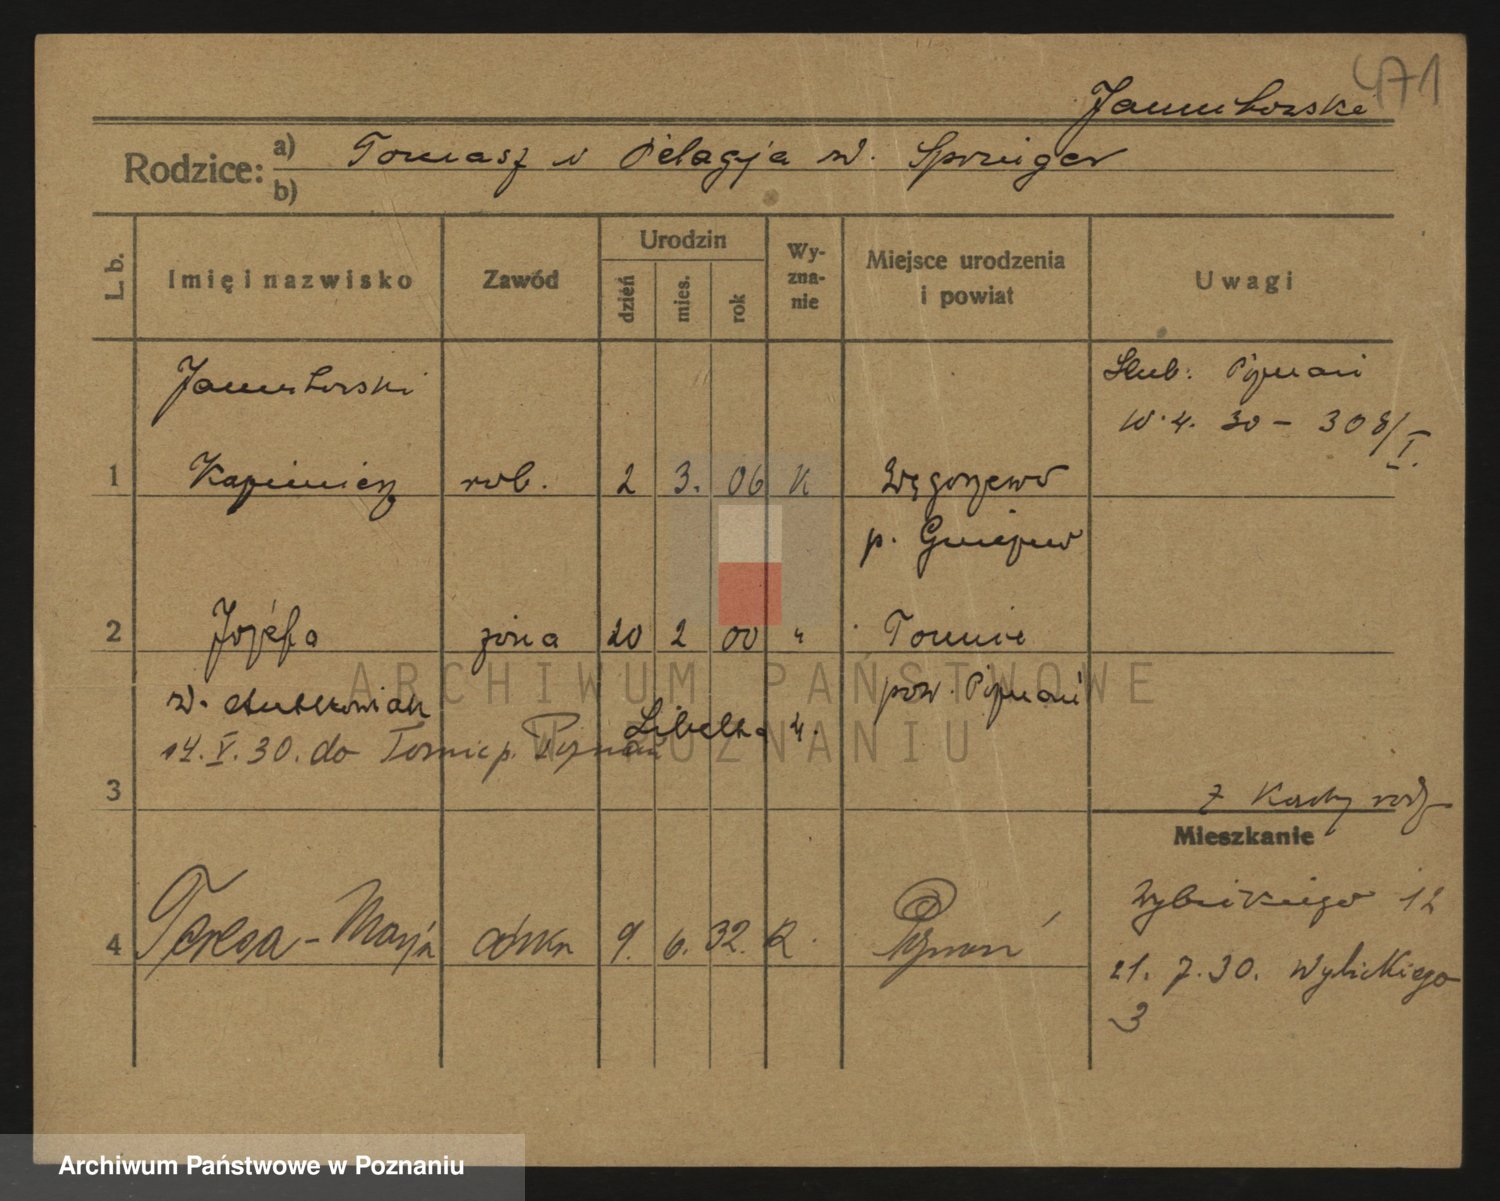 471
Janiszewski
Rodzice: a) Tomasz i Pelagja z d. Springer
b)
L. b.
Imię i nazwisko
Zawód
Urodzin
dzień
mies.
rok
Wy-
zna-
nie
Miejsce urodzenia
i powiat
Uwagi
Ślub: Poznań
10. 4. 30 - 308/I.
1 Kazimierz rob. 2 3. 06 K
p. Gniezno
2 Józefa żona 20 2 00 "
pow. Poznań
14. V. 30. do p. Poznań
3
Mieszkanie
Wybickiego 12
4 Teresa - Marja córka 9. 6. 32. R. Poznań
21. 7. 30. Wybickiego
3
ARCHIWUM PAŃSTWOWE
W POZNANIU
Archiwum Państwowe w Poznaniu